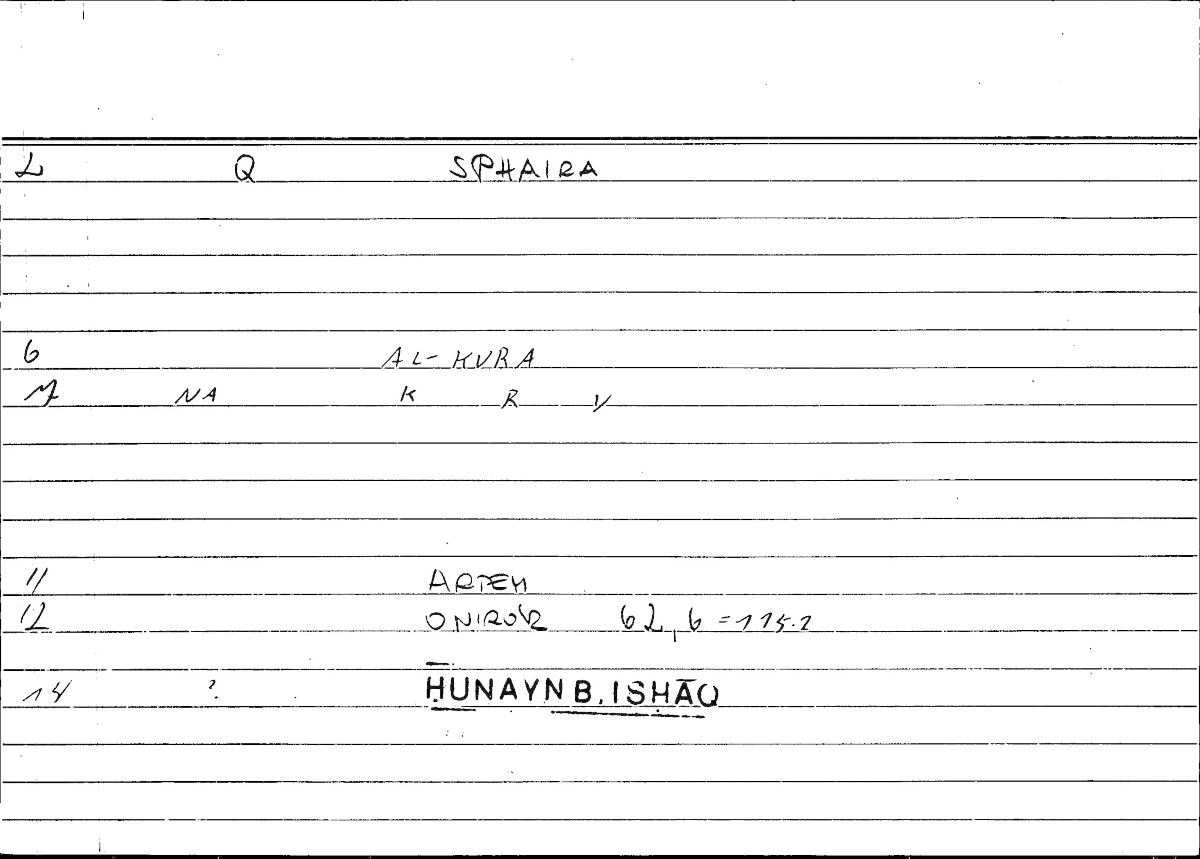 2 Q SPHAIRA
6 AL-KURA
7 NA K R
11 ARTEM
12 ONIROK 62,6 = 115.2
14 ?. HUNAYN B. ISHĀQ